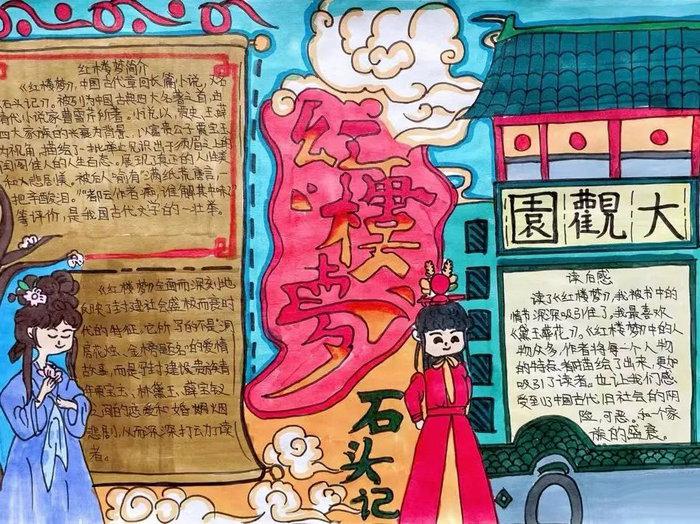 红楼梦简介
《红楼梦》，中国古代章回长篇小说，又名
石头记》。被列为中国古典四大名著之首，由
清代小说家曹雪芹所著。小说以贾、史、王、薛
四大家族的兴衰为背景，以富贵公子贾宝玉
为视角，描绘了一批举止见识出于须眉之上的
闺阁佳人的人生百态。展现了真正的人性美
和人悲剧美。被后人
把辛酸泪。""都云作者痴，谁解其中味？"
等评价，是我国古代文学的一壮举。
《红楼梦》全面而深刻地
反映了封建社会盛极而衰时
代的特征。它所写的不是"洞
房花烛、金榜题名"的爱情
故事，而是写封建贵族青
年贾宝玉、林黛玉、薛宝钗
之间的恋爱和婚姻
悲剧，从而深深打动了读
者。
红楼梦
石头记
園觀大
读后感
读了《红楼梦》，我被书中的
情节深深吸引住了。我最喜欢
《黛玉葬花》。《红楼梦》中的人
物众多，作者将每一个人物
的特点都描绘了出来，更加
吸引了读者。也让我们感
受到了中国古代旧社会的阴
险，可恶。和一个家
族的盛衰。